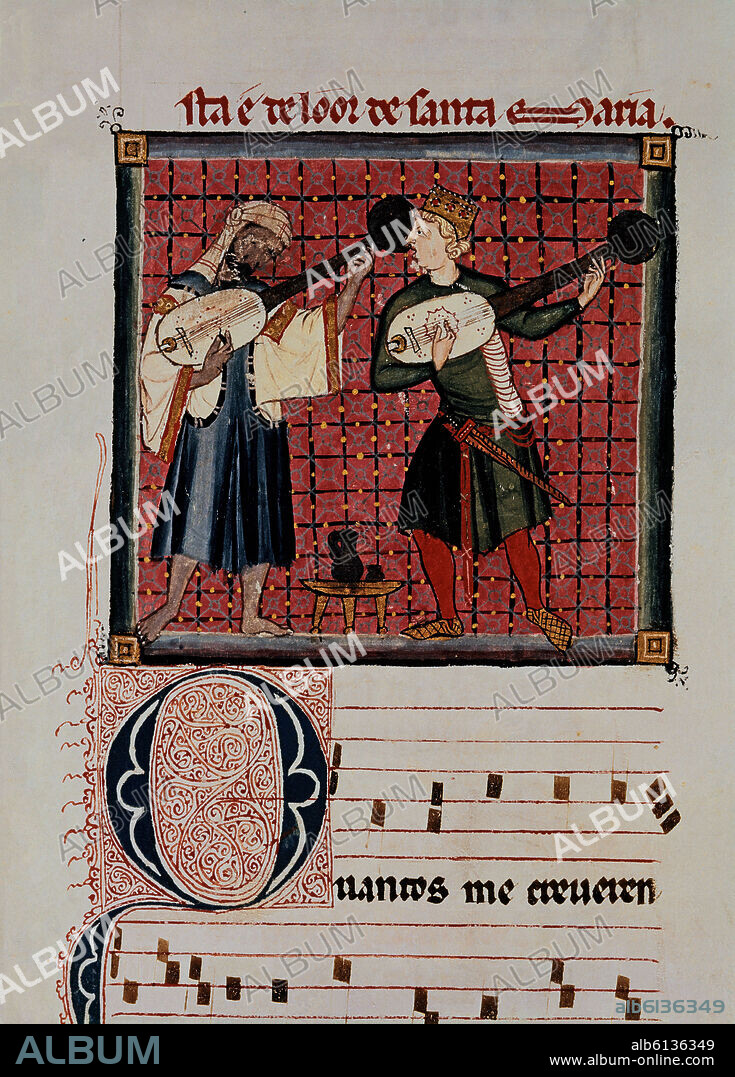 sta é de loor de santa Maria.
Quantos me creueren
ALBUM
alb6136349
alb6136349
www.album-online.com